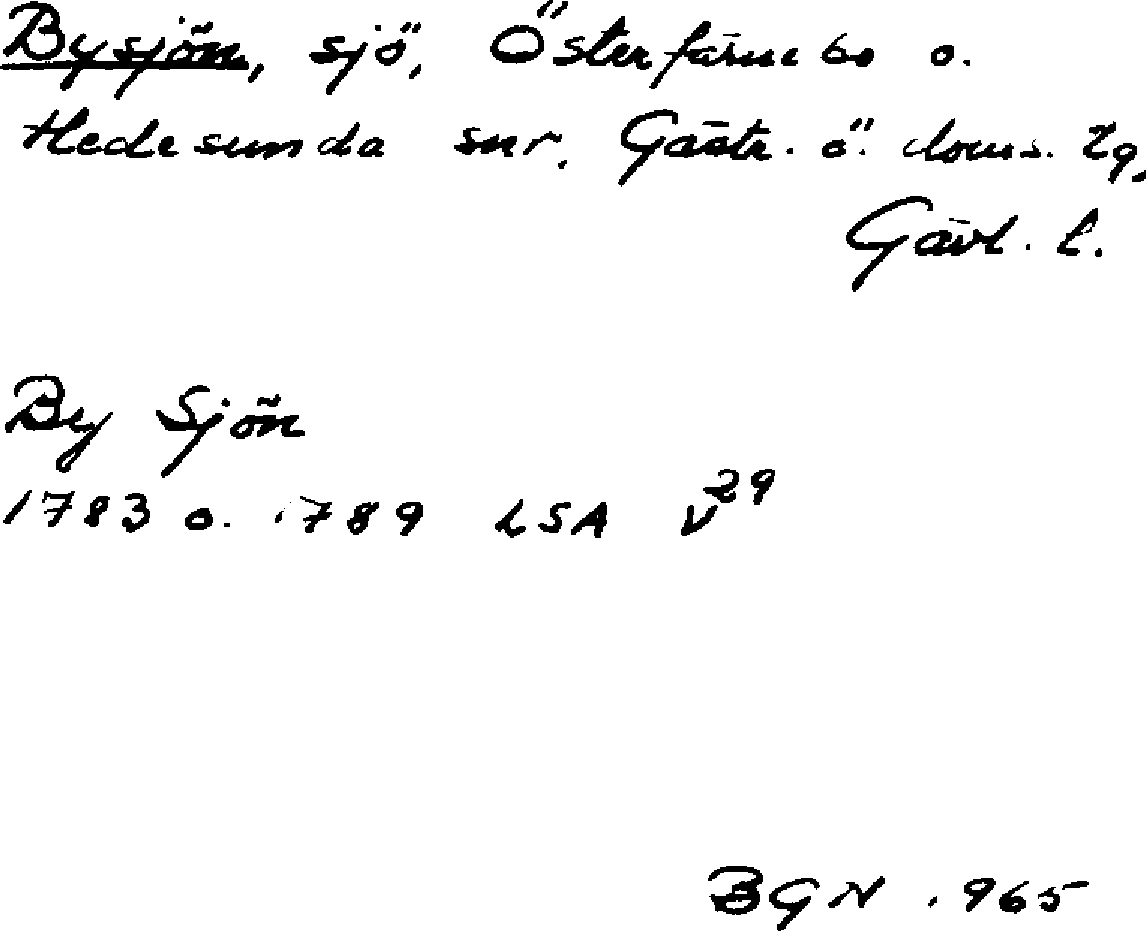 Bysjön, sjö, Österfärnebo o.
Hedesunda snr. Gästr. ö. doms. tg,
Gävl. l.
By Sjön
1783 o. 1789 LSA V29
BGN 1965